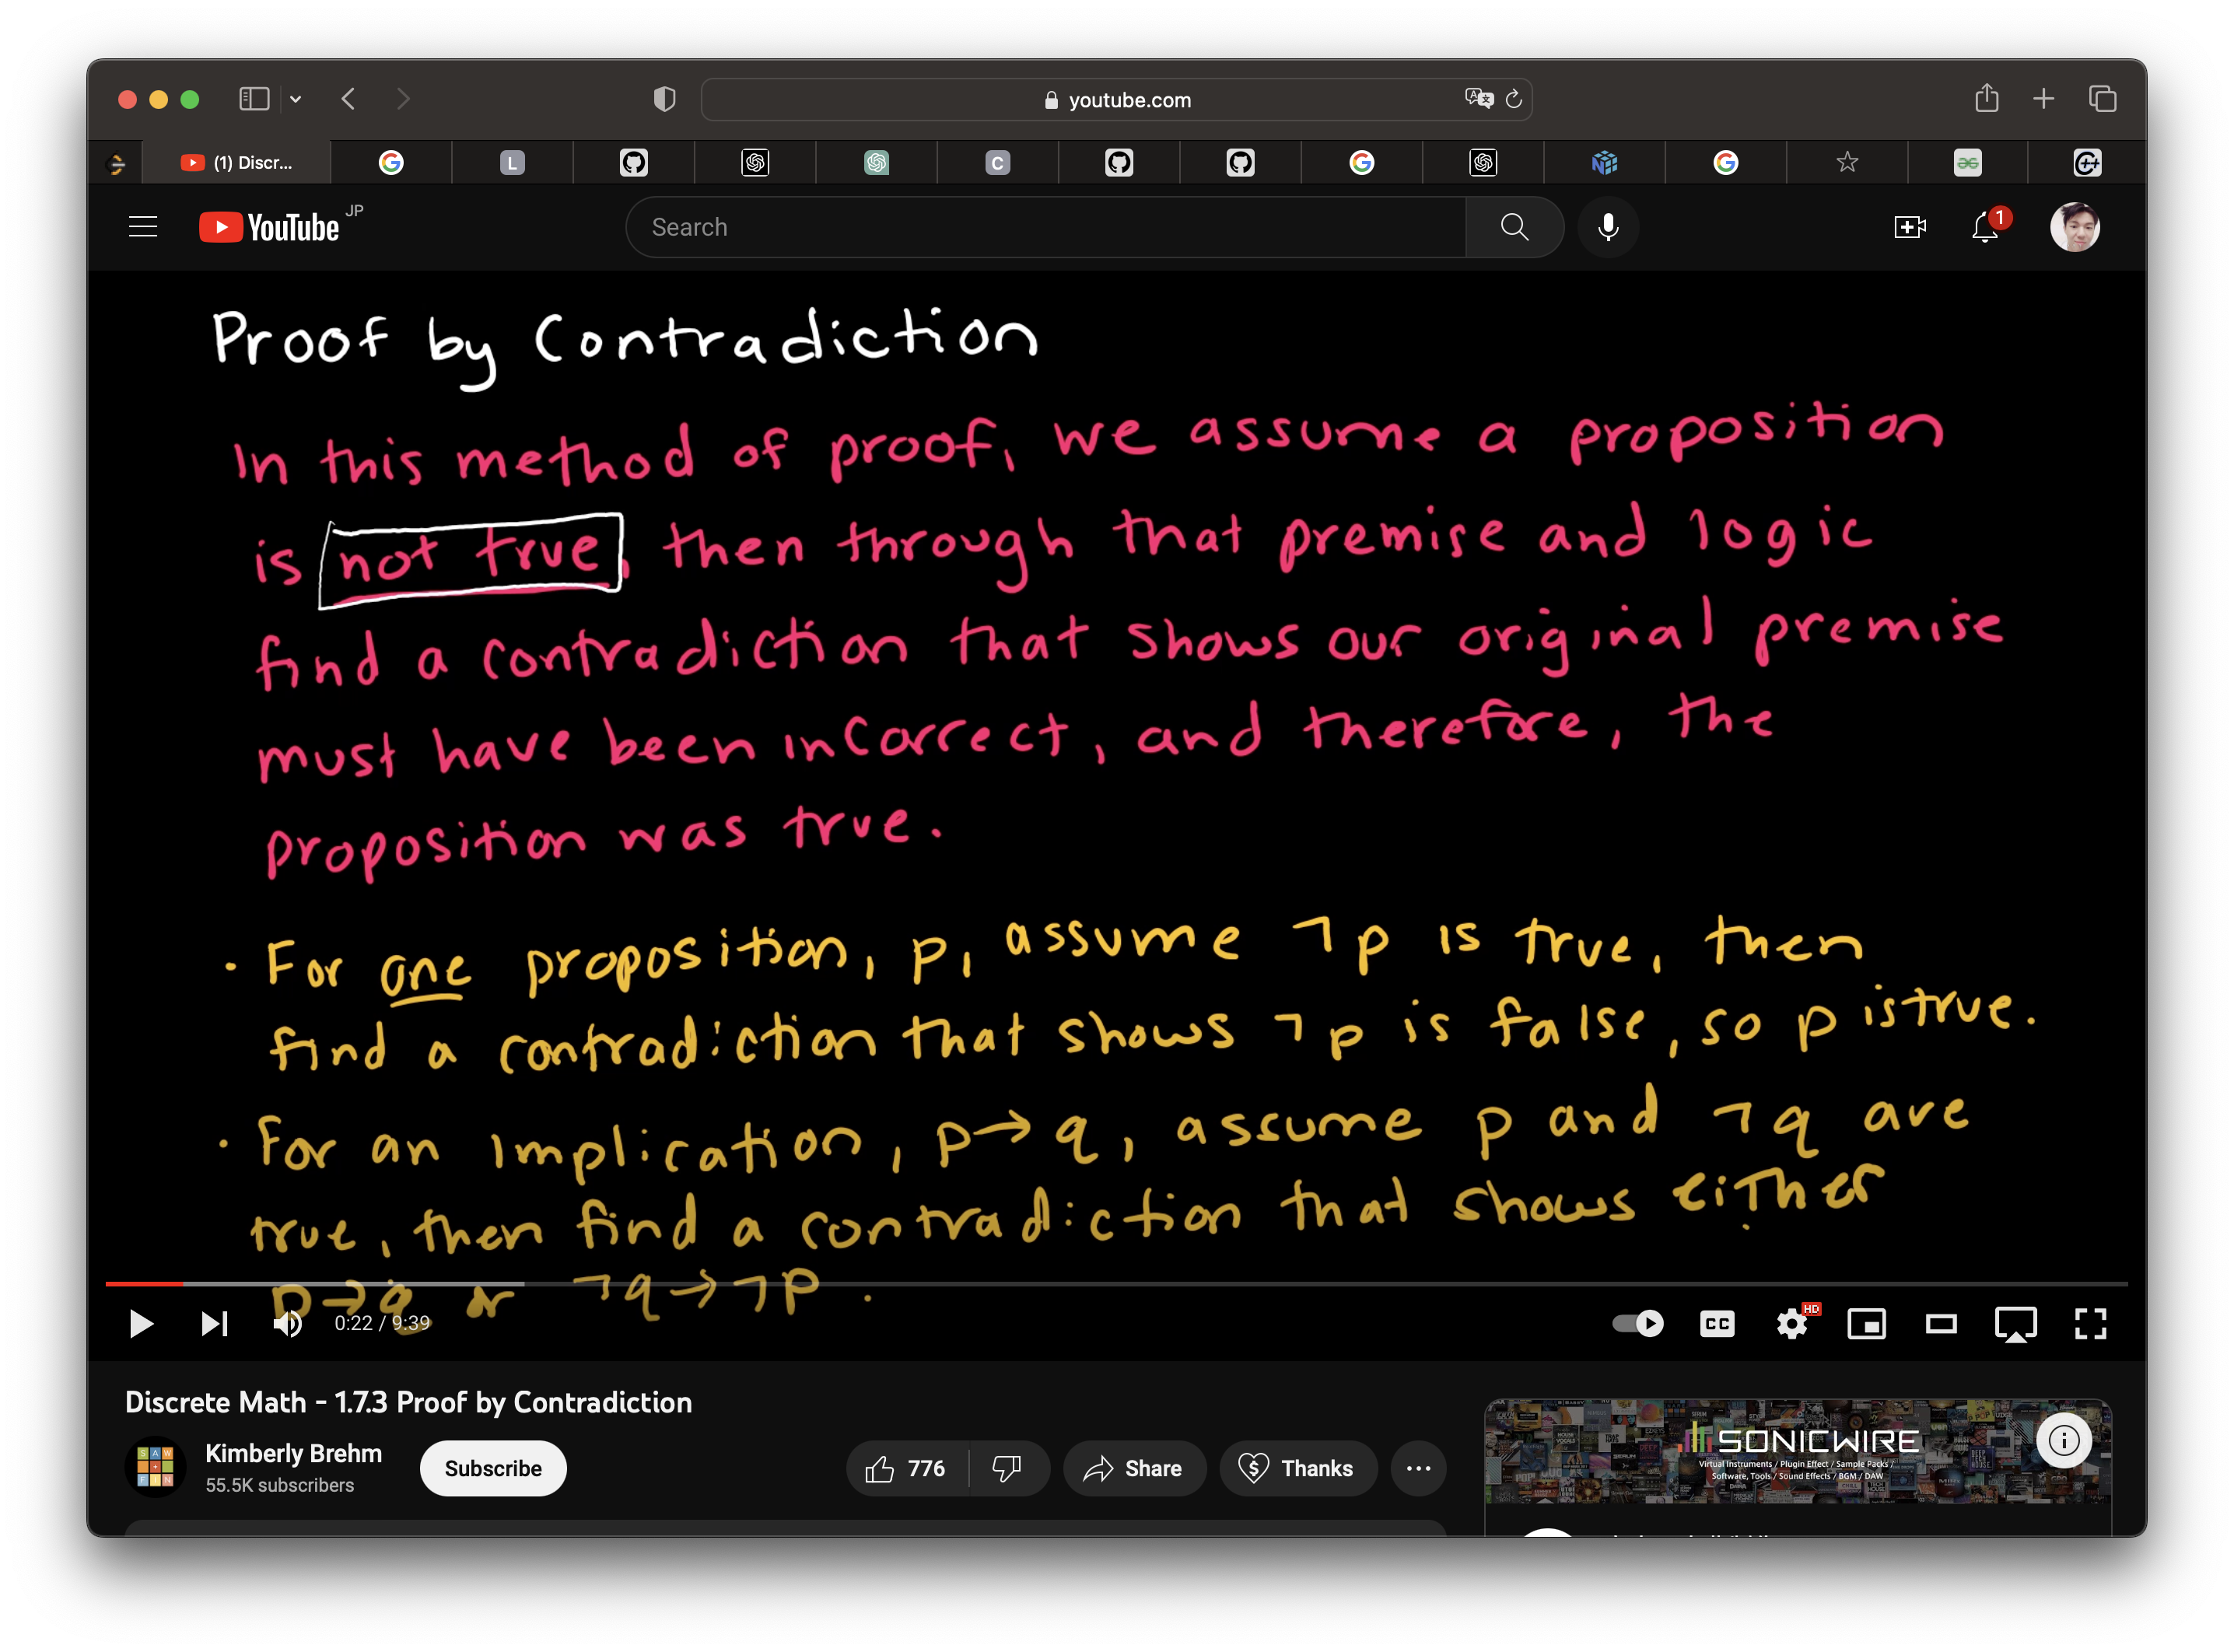 youtube.com
(1) Discr...
L
C
YouTube JP
Search
1
Proof by Contradiction
In this method of proof, we assume a proposition
is not true, then through that premise and logic
find a contradiction that shows our original premise
must have been incorrect, and therefore, the
proposition was true.
· For one proposition, p, assume ¬p is true, then
find a contradiction that shows ¬p is false, so p is true.
· For an implication, p→q, assume p and ¬q are
true, then find a contradiction that shows either
p→q or ¬q→¬p.
0:22 / 9:39
CC
HD
Discrete Math - 1.7.3 Proof by Contradiction
Kimberly Brehm
55.5K subscribers
Subscribe
776
Share
Thanks
SONICWIRE
Virtual Instruments / Plugin Effect / Sample Packs /
Software, Tools / Sound Effects / BGM / DAW